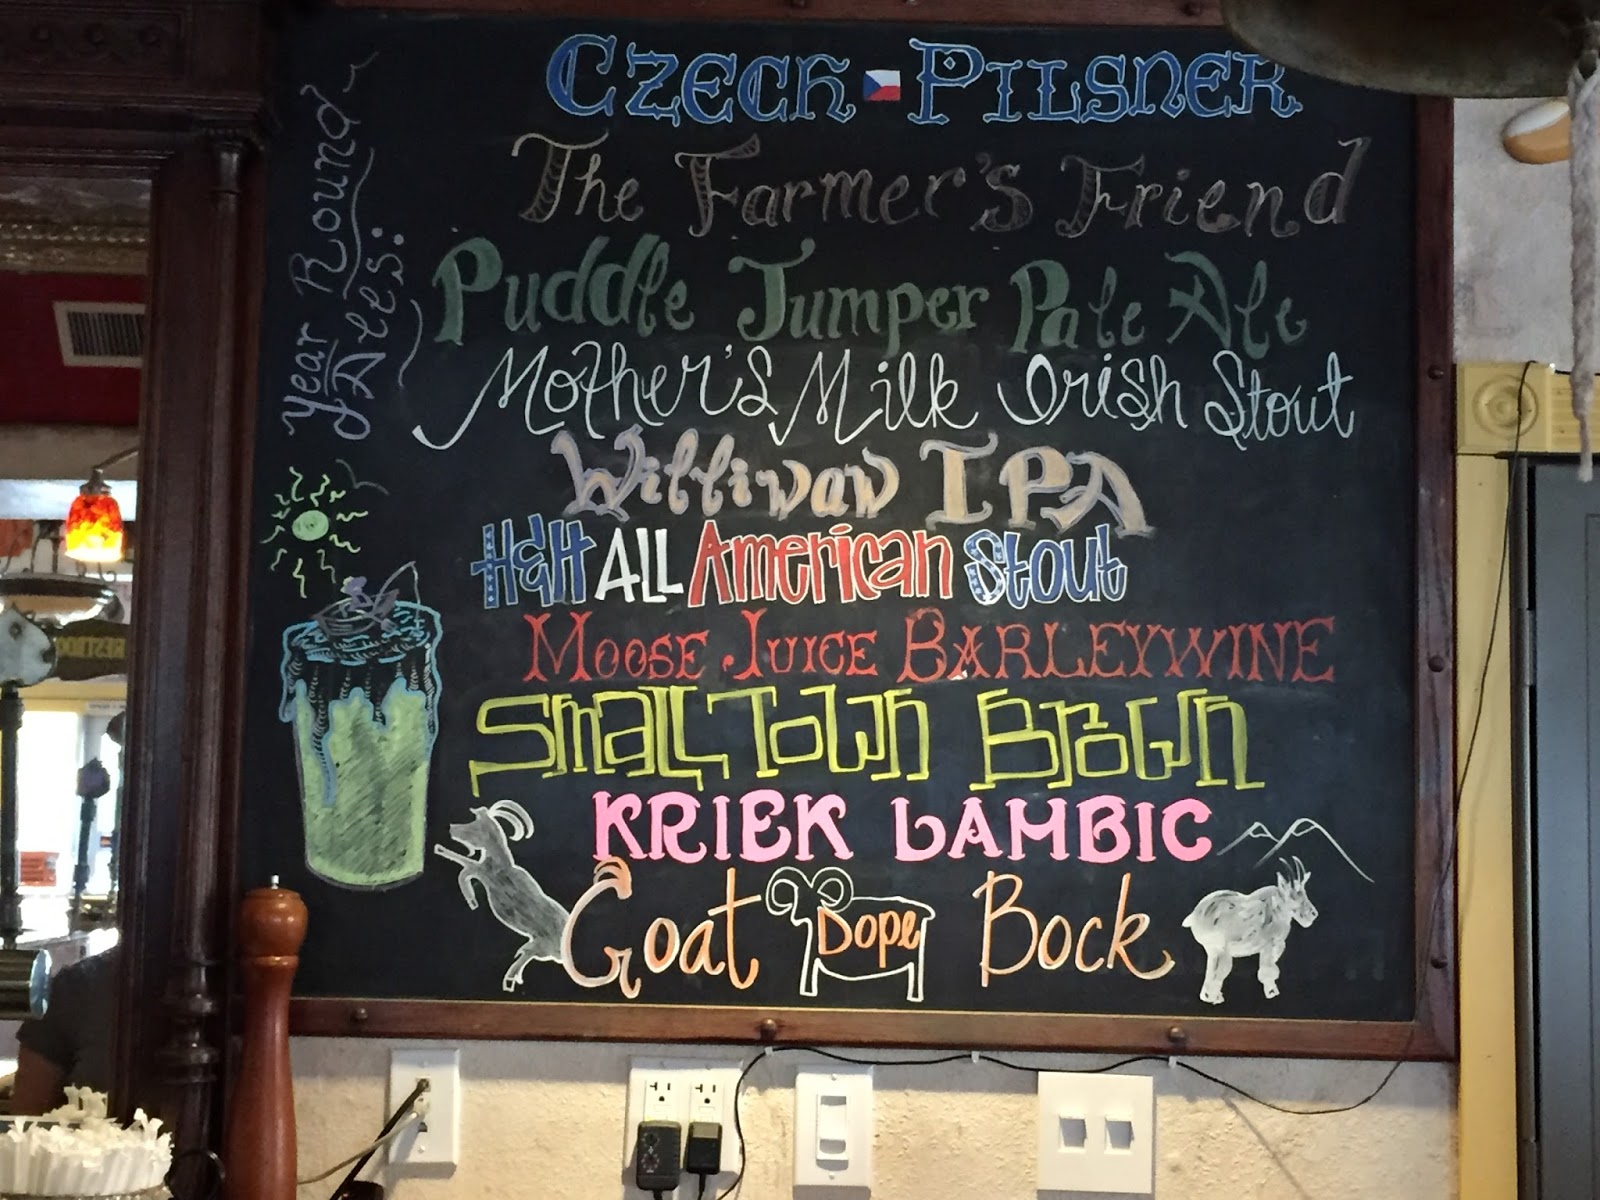 Year Round
Ales:
Czech Pilsner
The Farmer's Friend
Puddle Jumper Pale Ale
Mother's Milk Irish Stout
Williwaw IPA
H&H All American Stout
Moose Juice Barleywine
Small Town Brown
KRIEK LAMBIC
Goat Dope Bock